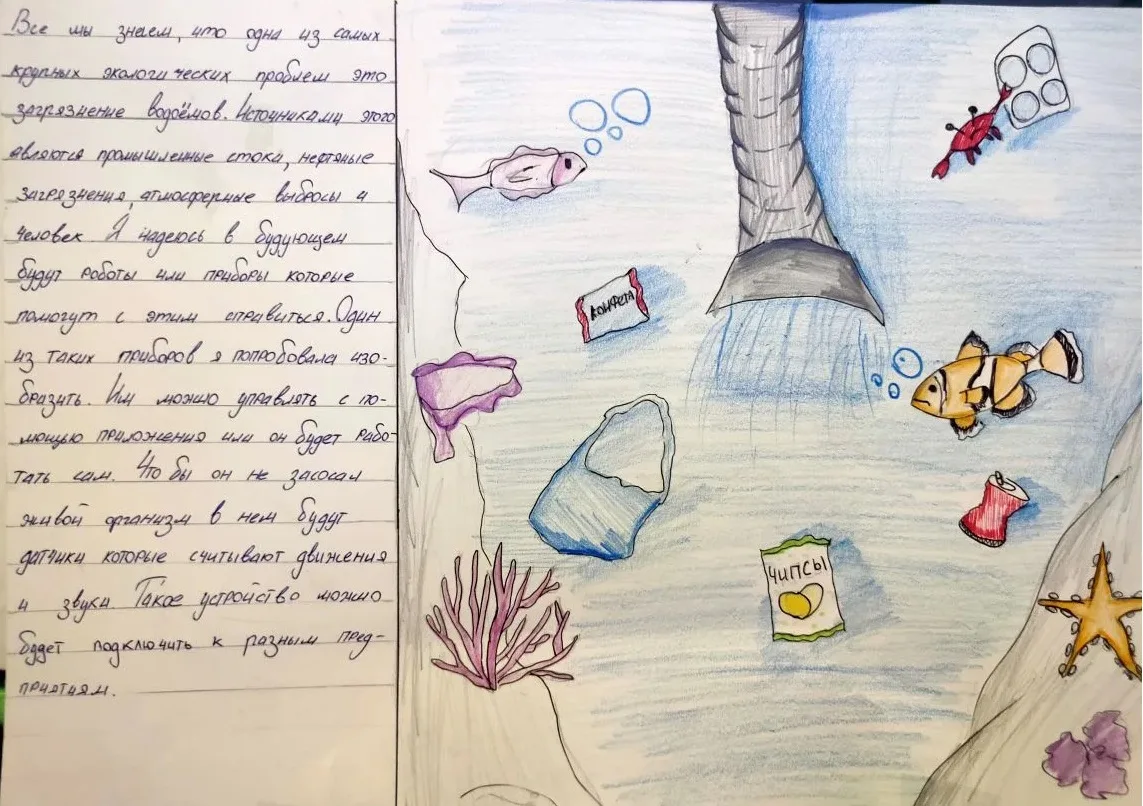 Все мы знаем, что одна из самых
крупных экологических проблем это
загрязнение водоёмов. Источниками этого
являются промышленные стоки, нефтяные
загрязнения, атмосферные выбросы и
человек Я надеюсь в будующем
будут роботы или приборы которые
помогут с этим справиться. Один
из таких приборов я попробовала изо-
бразить. Им можно управлять с по-
мощью приложения или он будет рабо-
тать сам. Что бы он не засосал
живой организм в нем будут
датчики которые считывают движения
и звуки. Такое устройство можно
будет подключить к разным пред-
приятиям.
КОНФЕТА
ЧИПСЫ